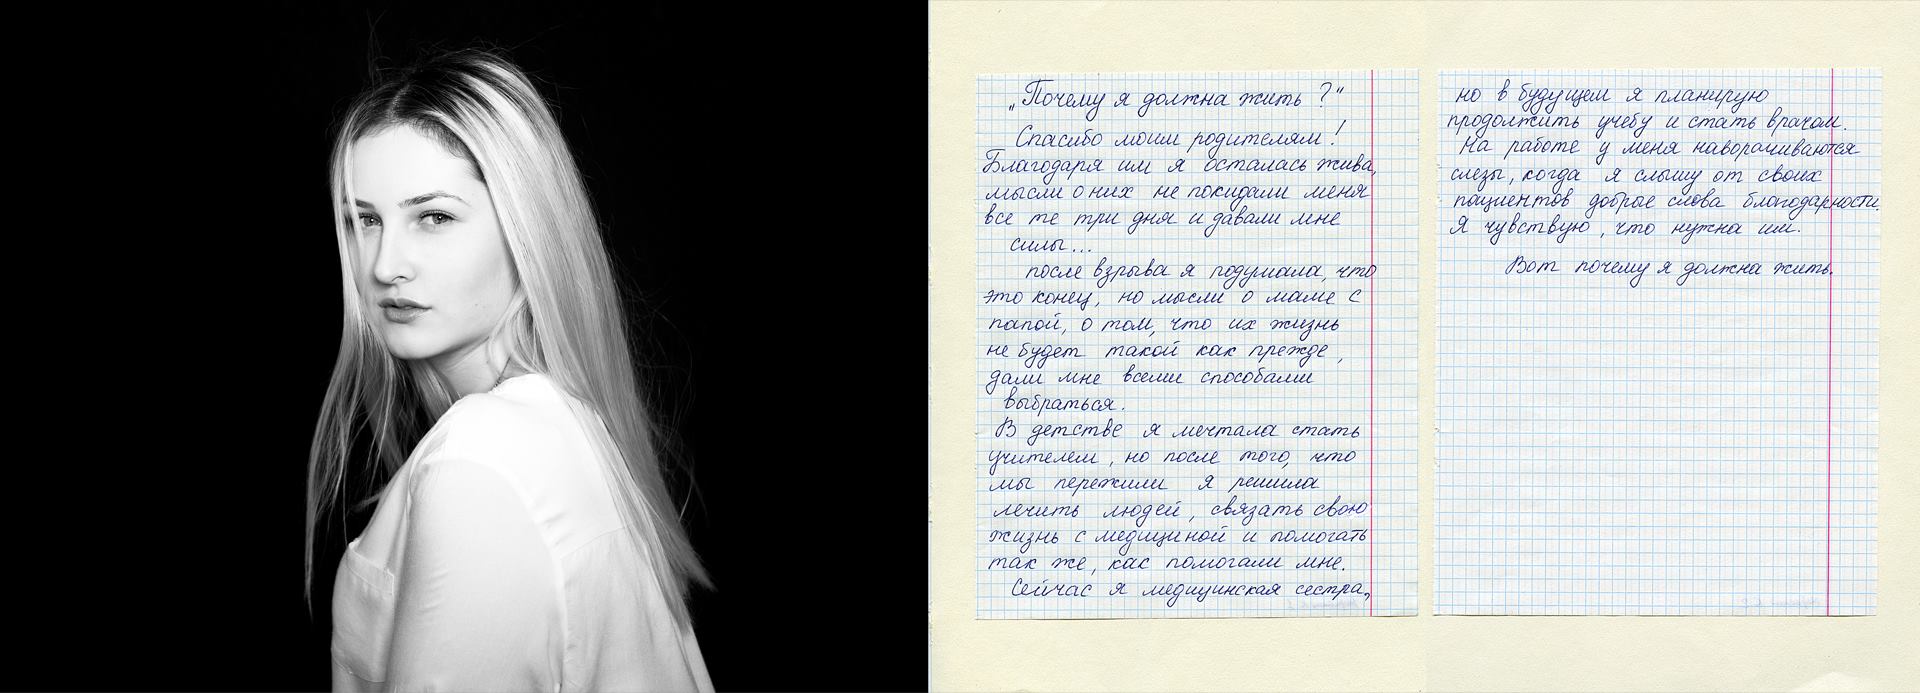 „Почему я должна жить ?"
Спасибо моим родителям !
Благодаря им я осталась жива,
мысли о них не покидали меня
все те три дня и давали мне
силы...
после взрыва я подумала, что
это конец, но мысли о маме с
папой, о том, что их жизнь
не будет такой как прежде,
дали мне всеми способами
выбраться.
В детстве я мечтала стать
учителем, но после того, что
мы пережили я решила
лечить людей, связать свою
жизнь с медициной и помогать
так же, кас помогали мне.
Сейчас я медицинская сестра,
но в будущем я планирую
продолжить учебу и стать врачом.
На работе у меня наворачиваются
слезы, когда я слышу от своих
пациентов добрые слова благодарности.
Я чувствую, что нужна им.
Вот почему я должна жить.